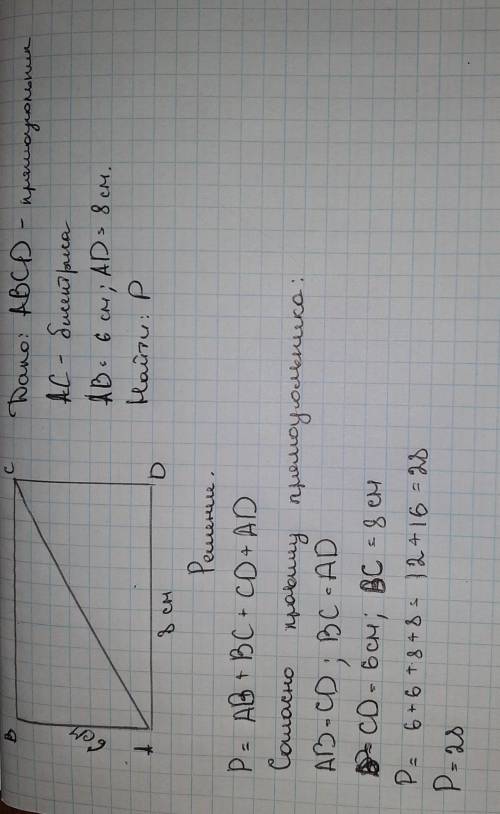 Дано: ABCD - прямоугольник
AC - биссектриса
AB = 6 см; AD = 8 см.
Найти: P
B
C
6 см
A
8 см
D
Решение.
P = AB + BC + CD + AD
Согласно правилу прямоугольника:
AB = CD; BC = AD
CD = 6 см; BC = 8 см
P = 6 + 6 + 8 + 8 = 12 + 16 = 28
P = 28